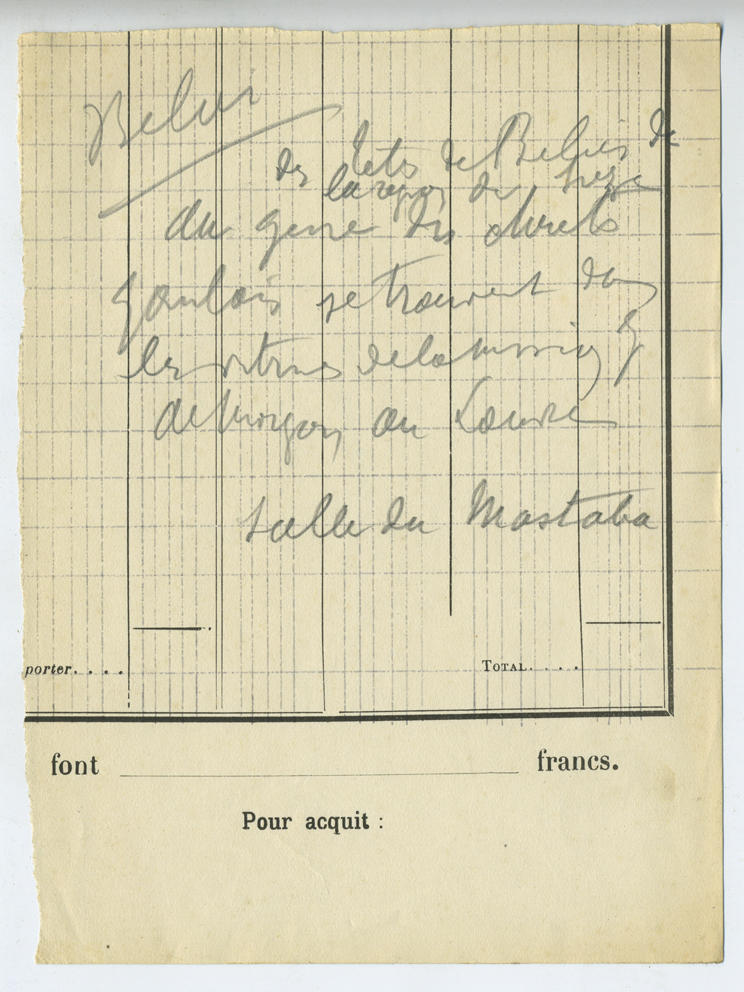 Belier
des têtes de Beliers de
la region de Suze
du genre des chenets
gaulois se trouvent dans
les vitrines de la mission
de Morgan au Louvre
salle du Mastaba
porter. . . .
Total. . . .
font francs.
Pour acquit :